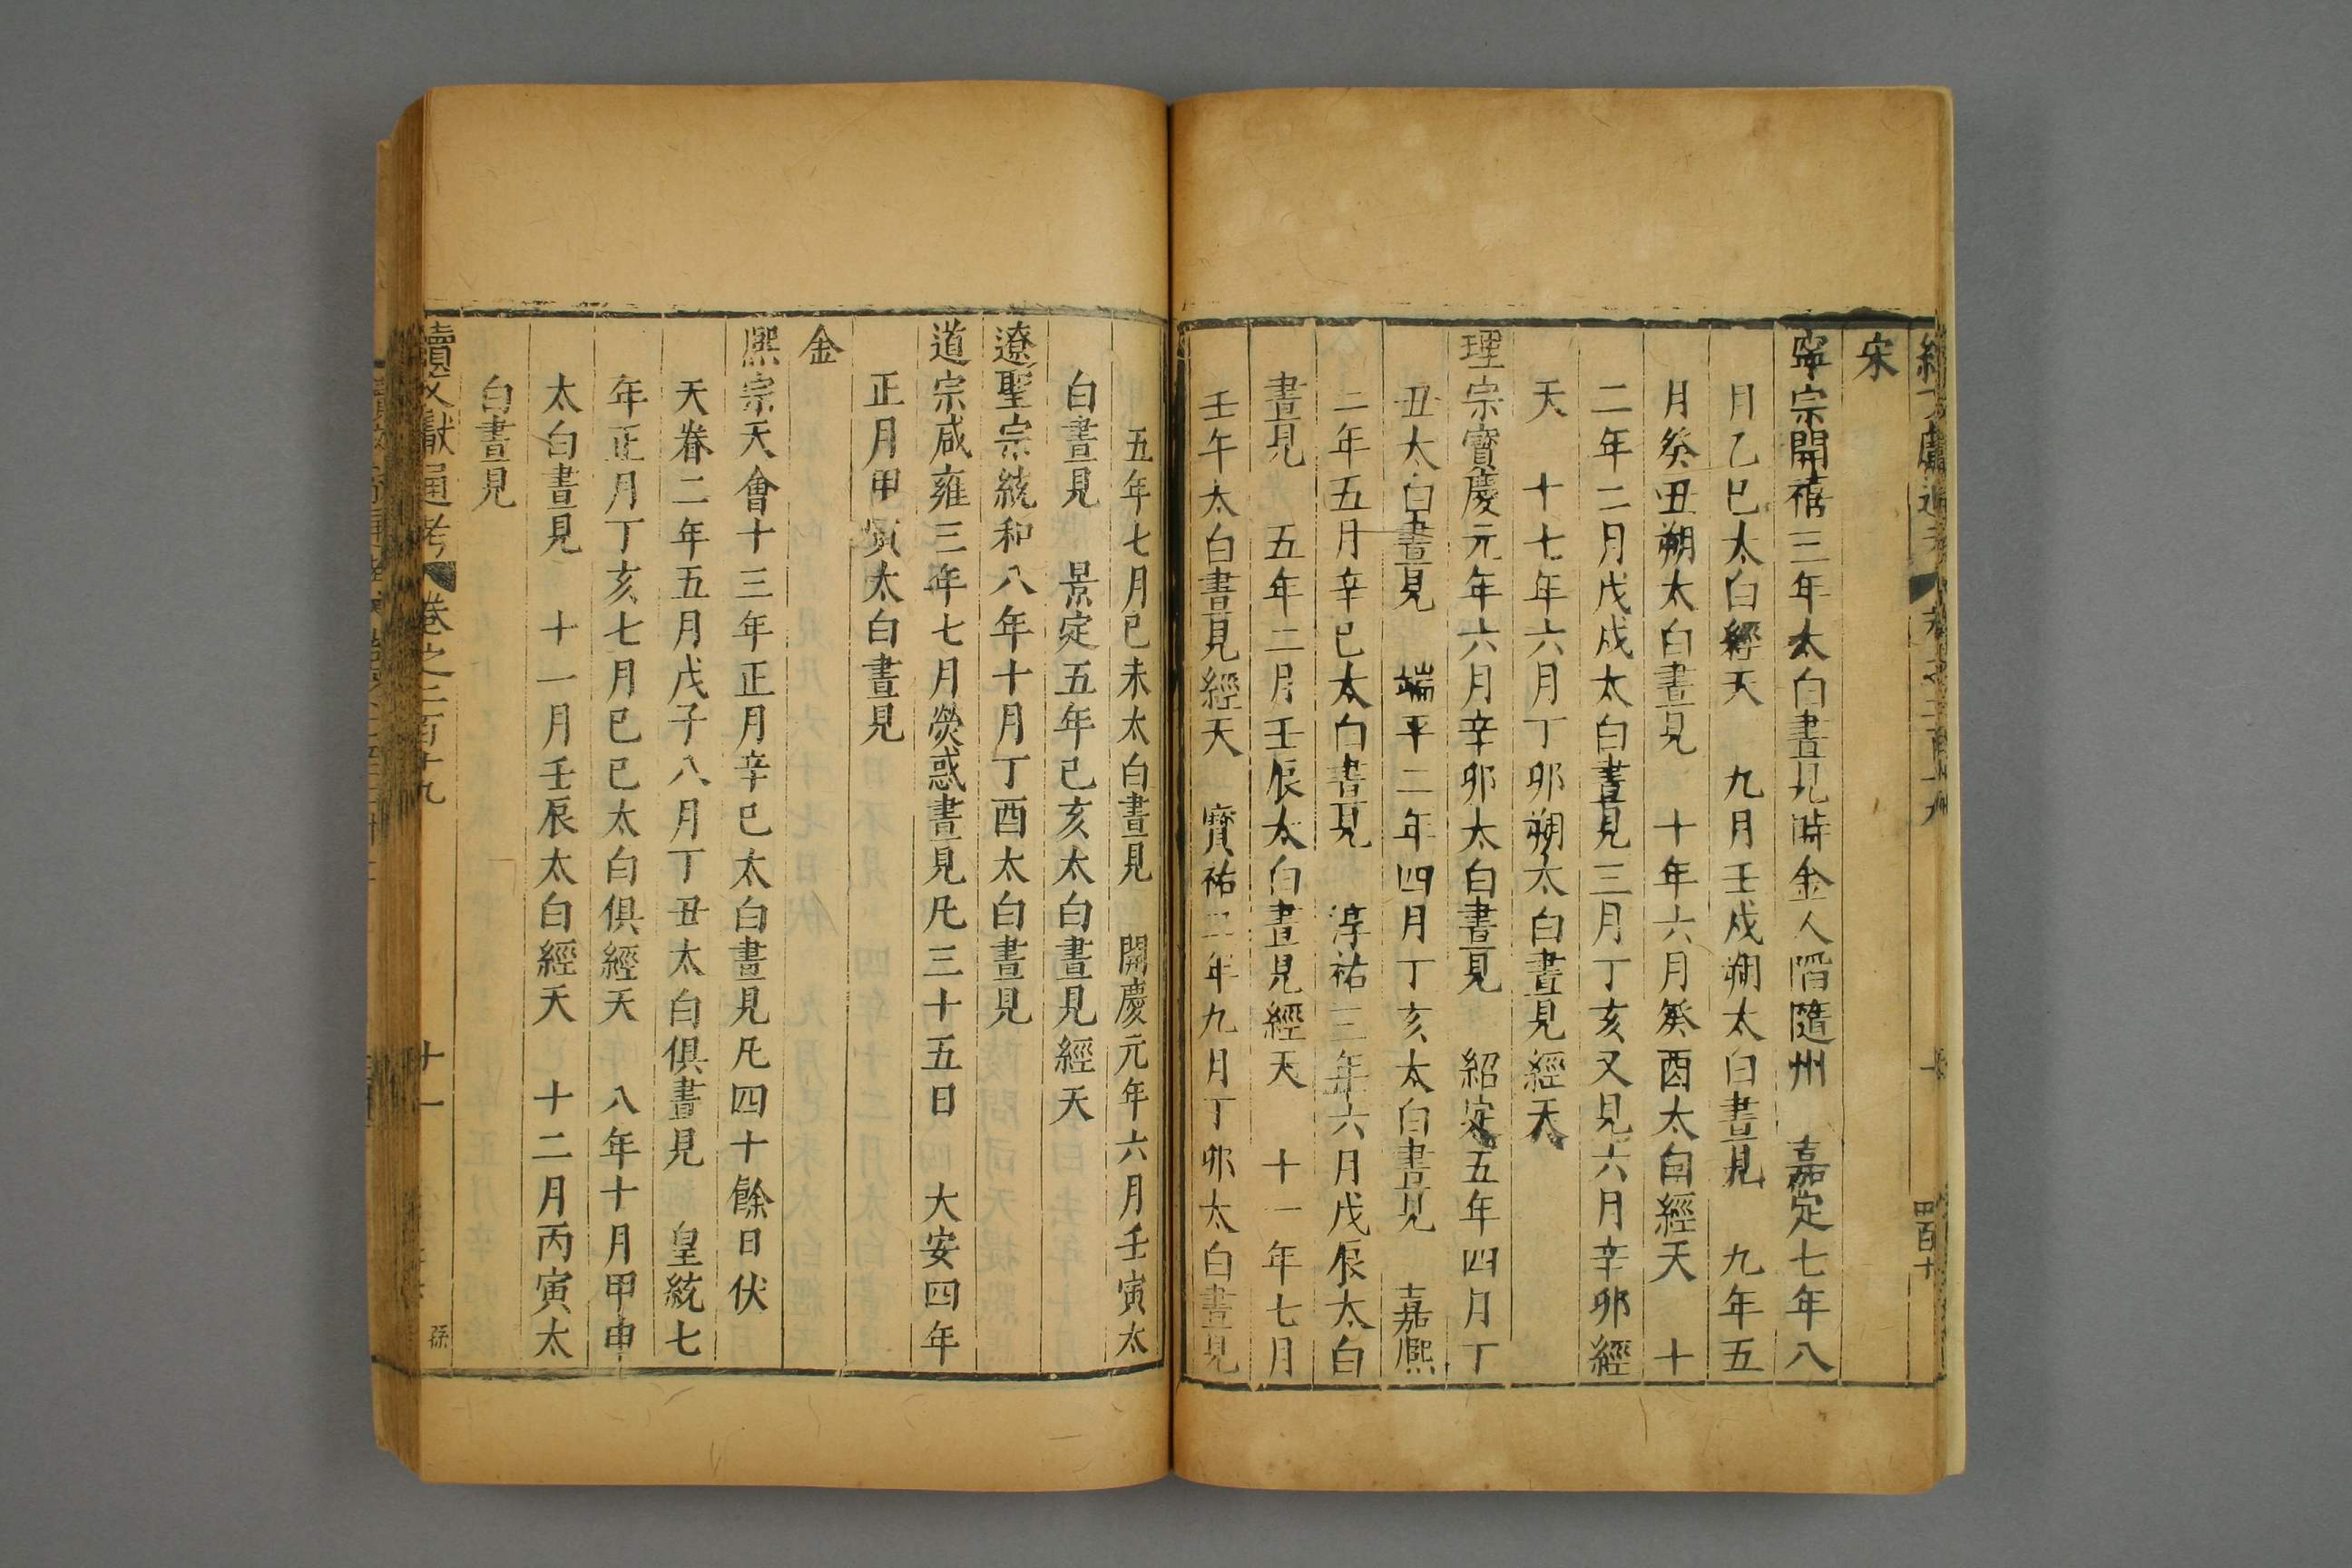 宋
寧宗開禧三年太白晝見時金人陷隨州 嘉定七年八
月乙巳太白經天 九月壬戌朔太白晝見 九年五
月癸丑朔太白晝見 十年六月癸酉太白經天 十
二年二月戊戌太白晝見三月丁亥又見六月辛卯經
天 十七年六月丁卯朔太白晝見經天
理宗寶慶元年六月辛卯太白晝見 紹定五年四月丁
丑太白晝見 端平二年四月丁亥太白晝見 嘉熙
二年五月辛巳太白晝見 淳祐三年六月戊辰太白
晝見 五年二月壬辰太白晝見經天 十一年七月
壬午太白晝見經天 寶祐二年九月丁卯太白晝見
五年七月己未太白晝見 開慶元年六月壬寅太
白晝見 景定五年己亥太白晝見經天
遼聖宗統和八年十月丁酉太白晝見
道宗咸雍三年七月熒惑晝見凡三十五日 大安四年
正月甲寅太白晝見
金
熙宗天會十三年正月辛巳太白晝見凡四十餘日伏
天眷二年五月戊子八月丁丑太白俱晝見 皇統七
年正月丁亥七月己巳太白俱經天 八年十月甲申
太白晝見 十一月壬辰太白經天 十二月丙寅太
白晝見
續文獻通考 卷之二百十九 十一 孫